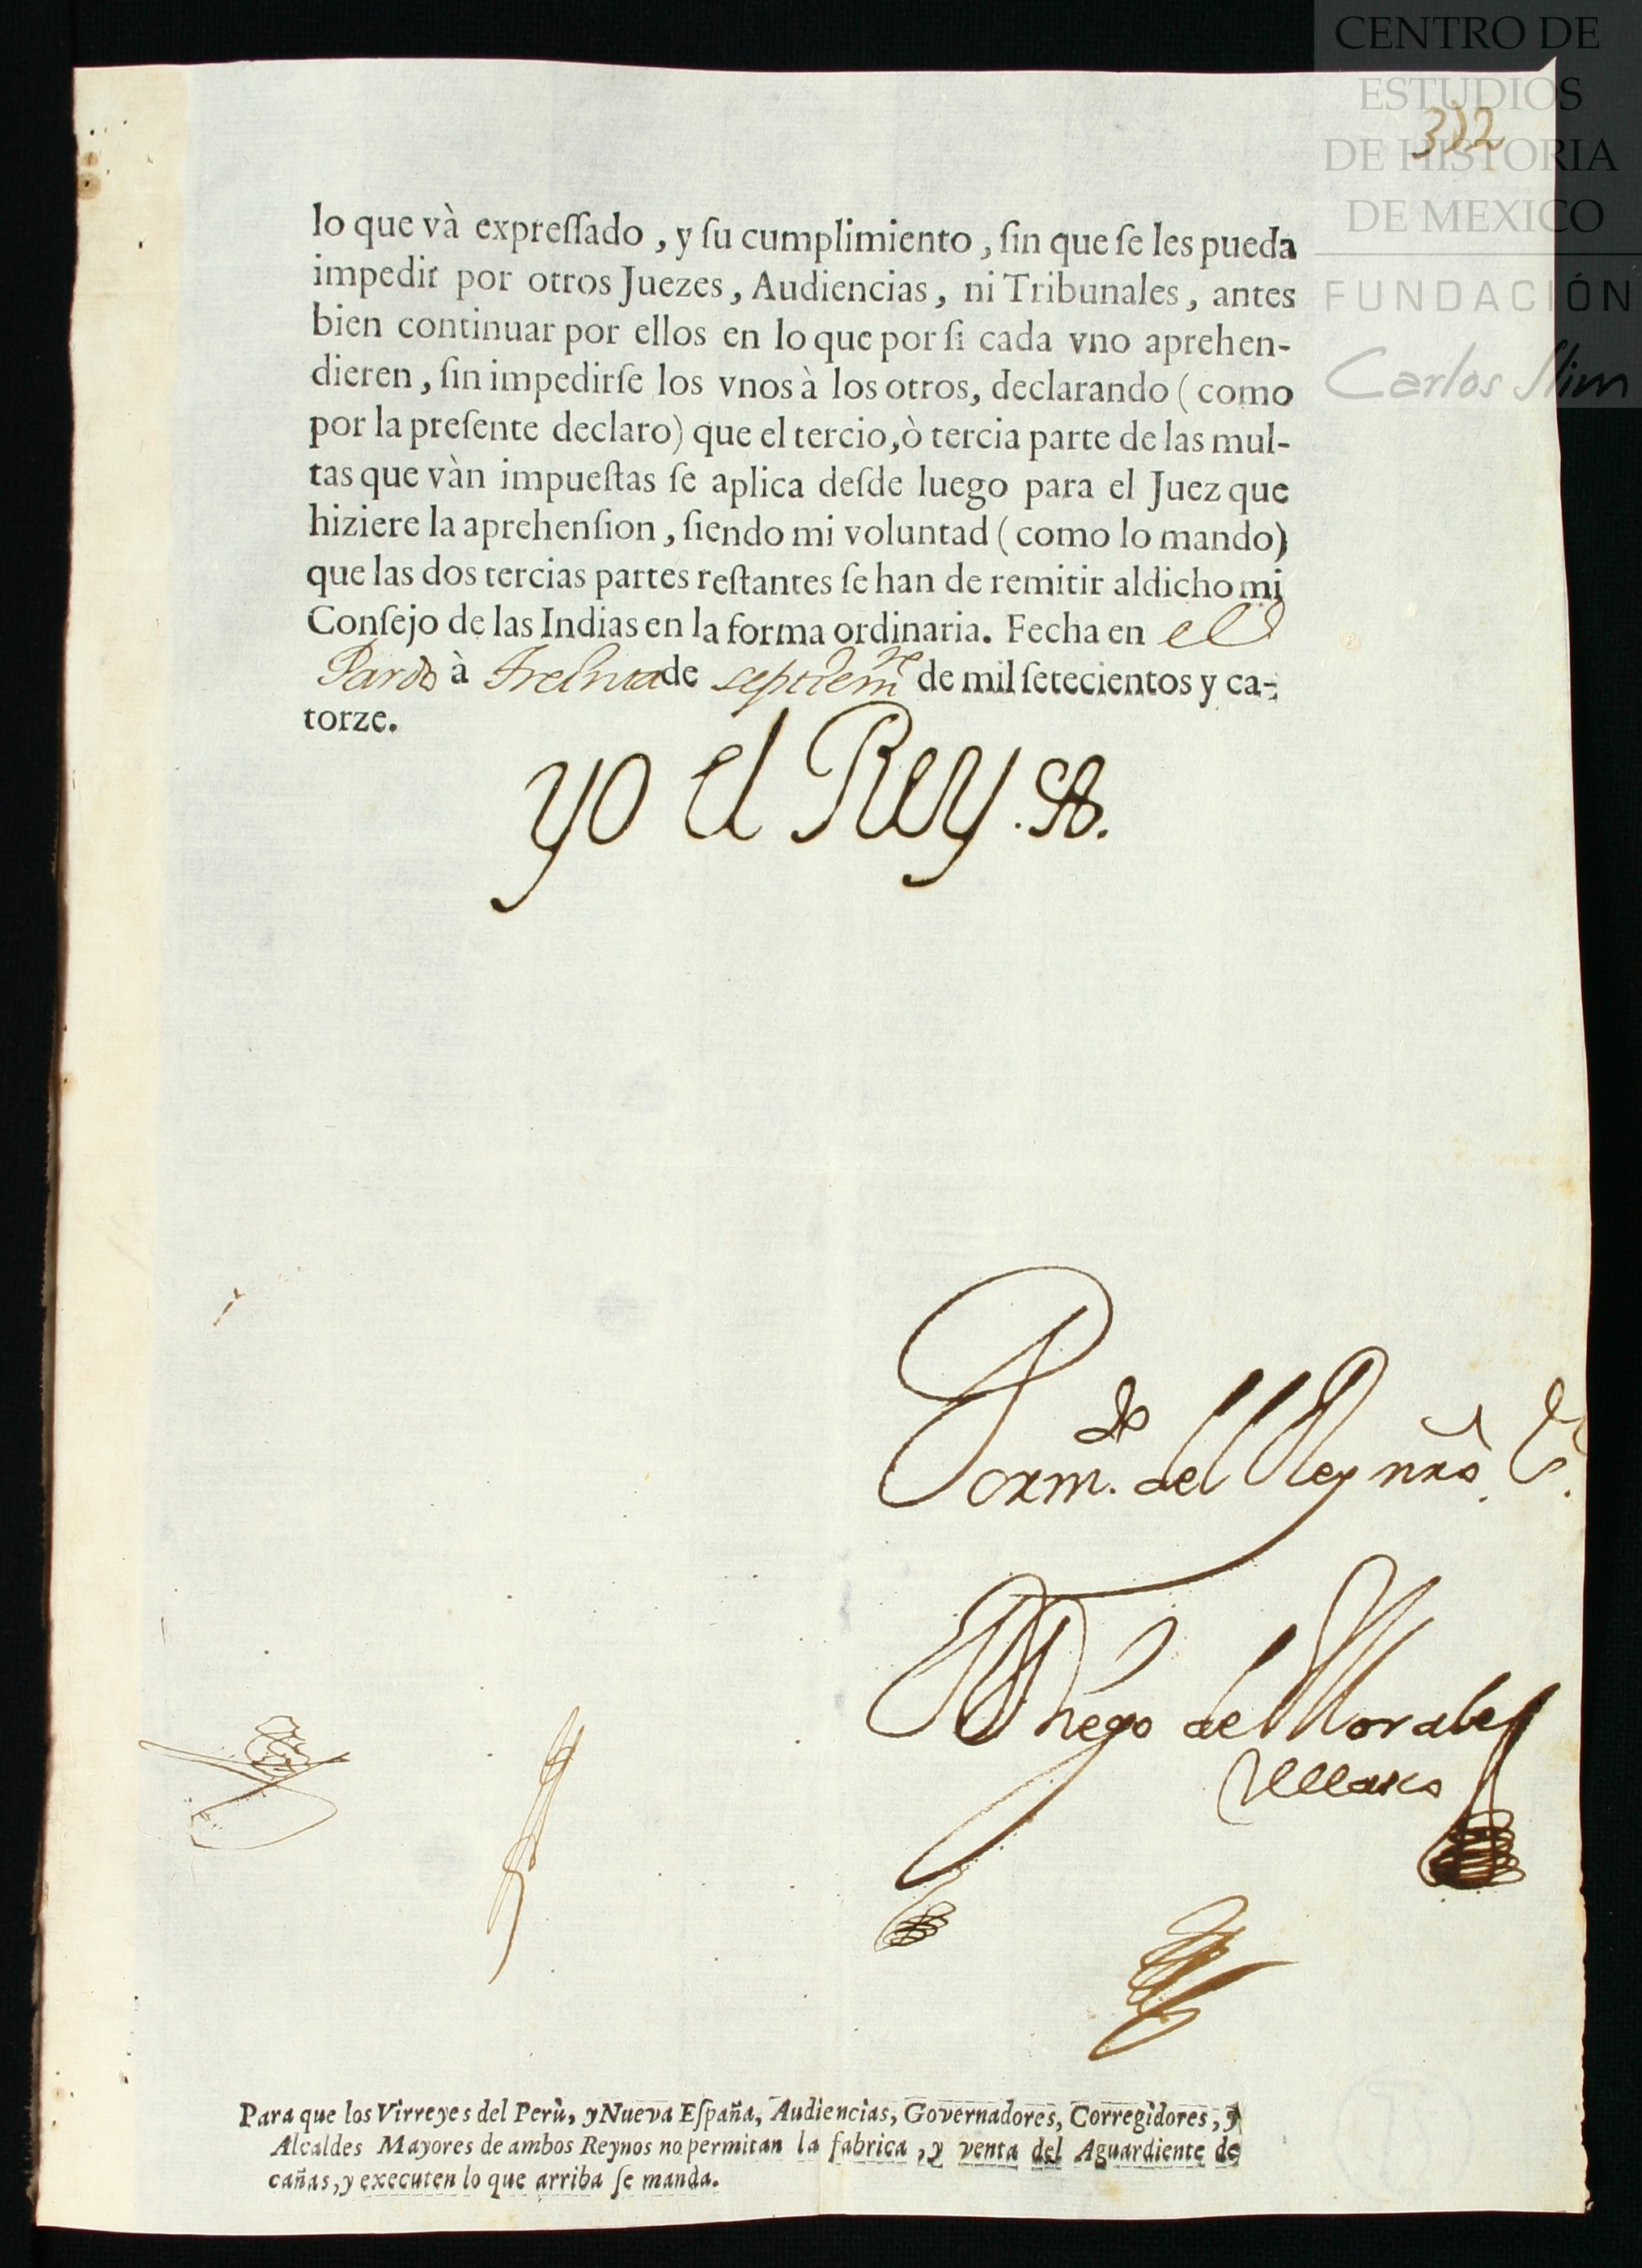 CENTRO DE
ESTUDIOS
DE HISTORIA
DE MEXICO
FUNDACIÓN
Carlos Slim
312
lo que và expreſſado, y ſu cumplimiento, ſin que ſe les pueda
impedir por otros Juezes, Audiencias, ni Tribunales, antes
bien continuar por ellos en lo que por ſi cada vno aprehen-
dieren, ſin impedirſe los vnos à los otros, declarando (como
por la preſente declaro) que el tercio, ò tercia parte de las mul-
tas que vàn impueſtas ſe aplica deſde luego para el Juez que
hiziere la aprehenſion, ſiendo mi voluntad (como lo mando)
que las dos tercias partes reſtantes ſe han de remitir al dicho mi
Conſejo de las Indias en la forma ordinaria. Fecha en el
Pardo à treinta de septiem^re de mil ſetecientos y ca-
torze.
yo el Rey
Por m.^do del Rey nrõ S.^r
Diego de Morales
Velasco
Para que los Virreyes del Perù, y Nueva Eſpaña, Audiencias, Governadores, Corregidores, y
Alcaldes Mayores de ambos Reynos no permitan la fabrica, y venta del Aguardiente de
cañas, y executen lo que arriba ſe manda.